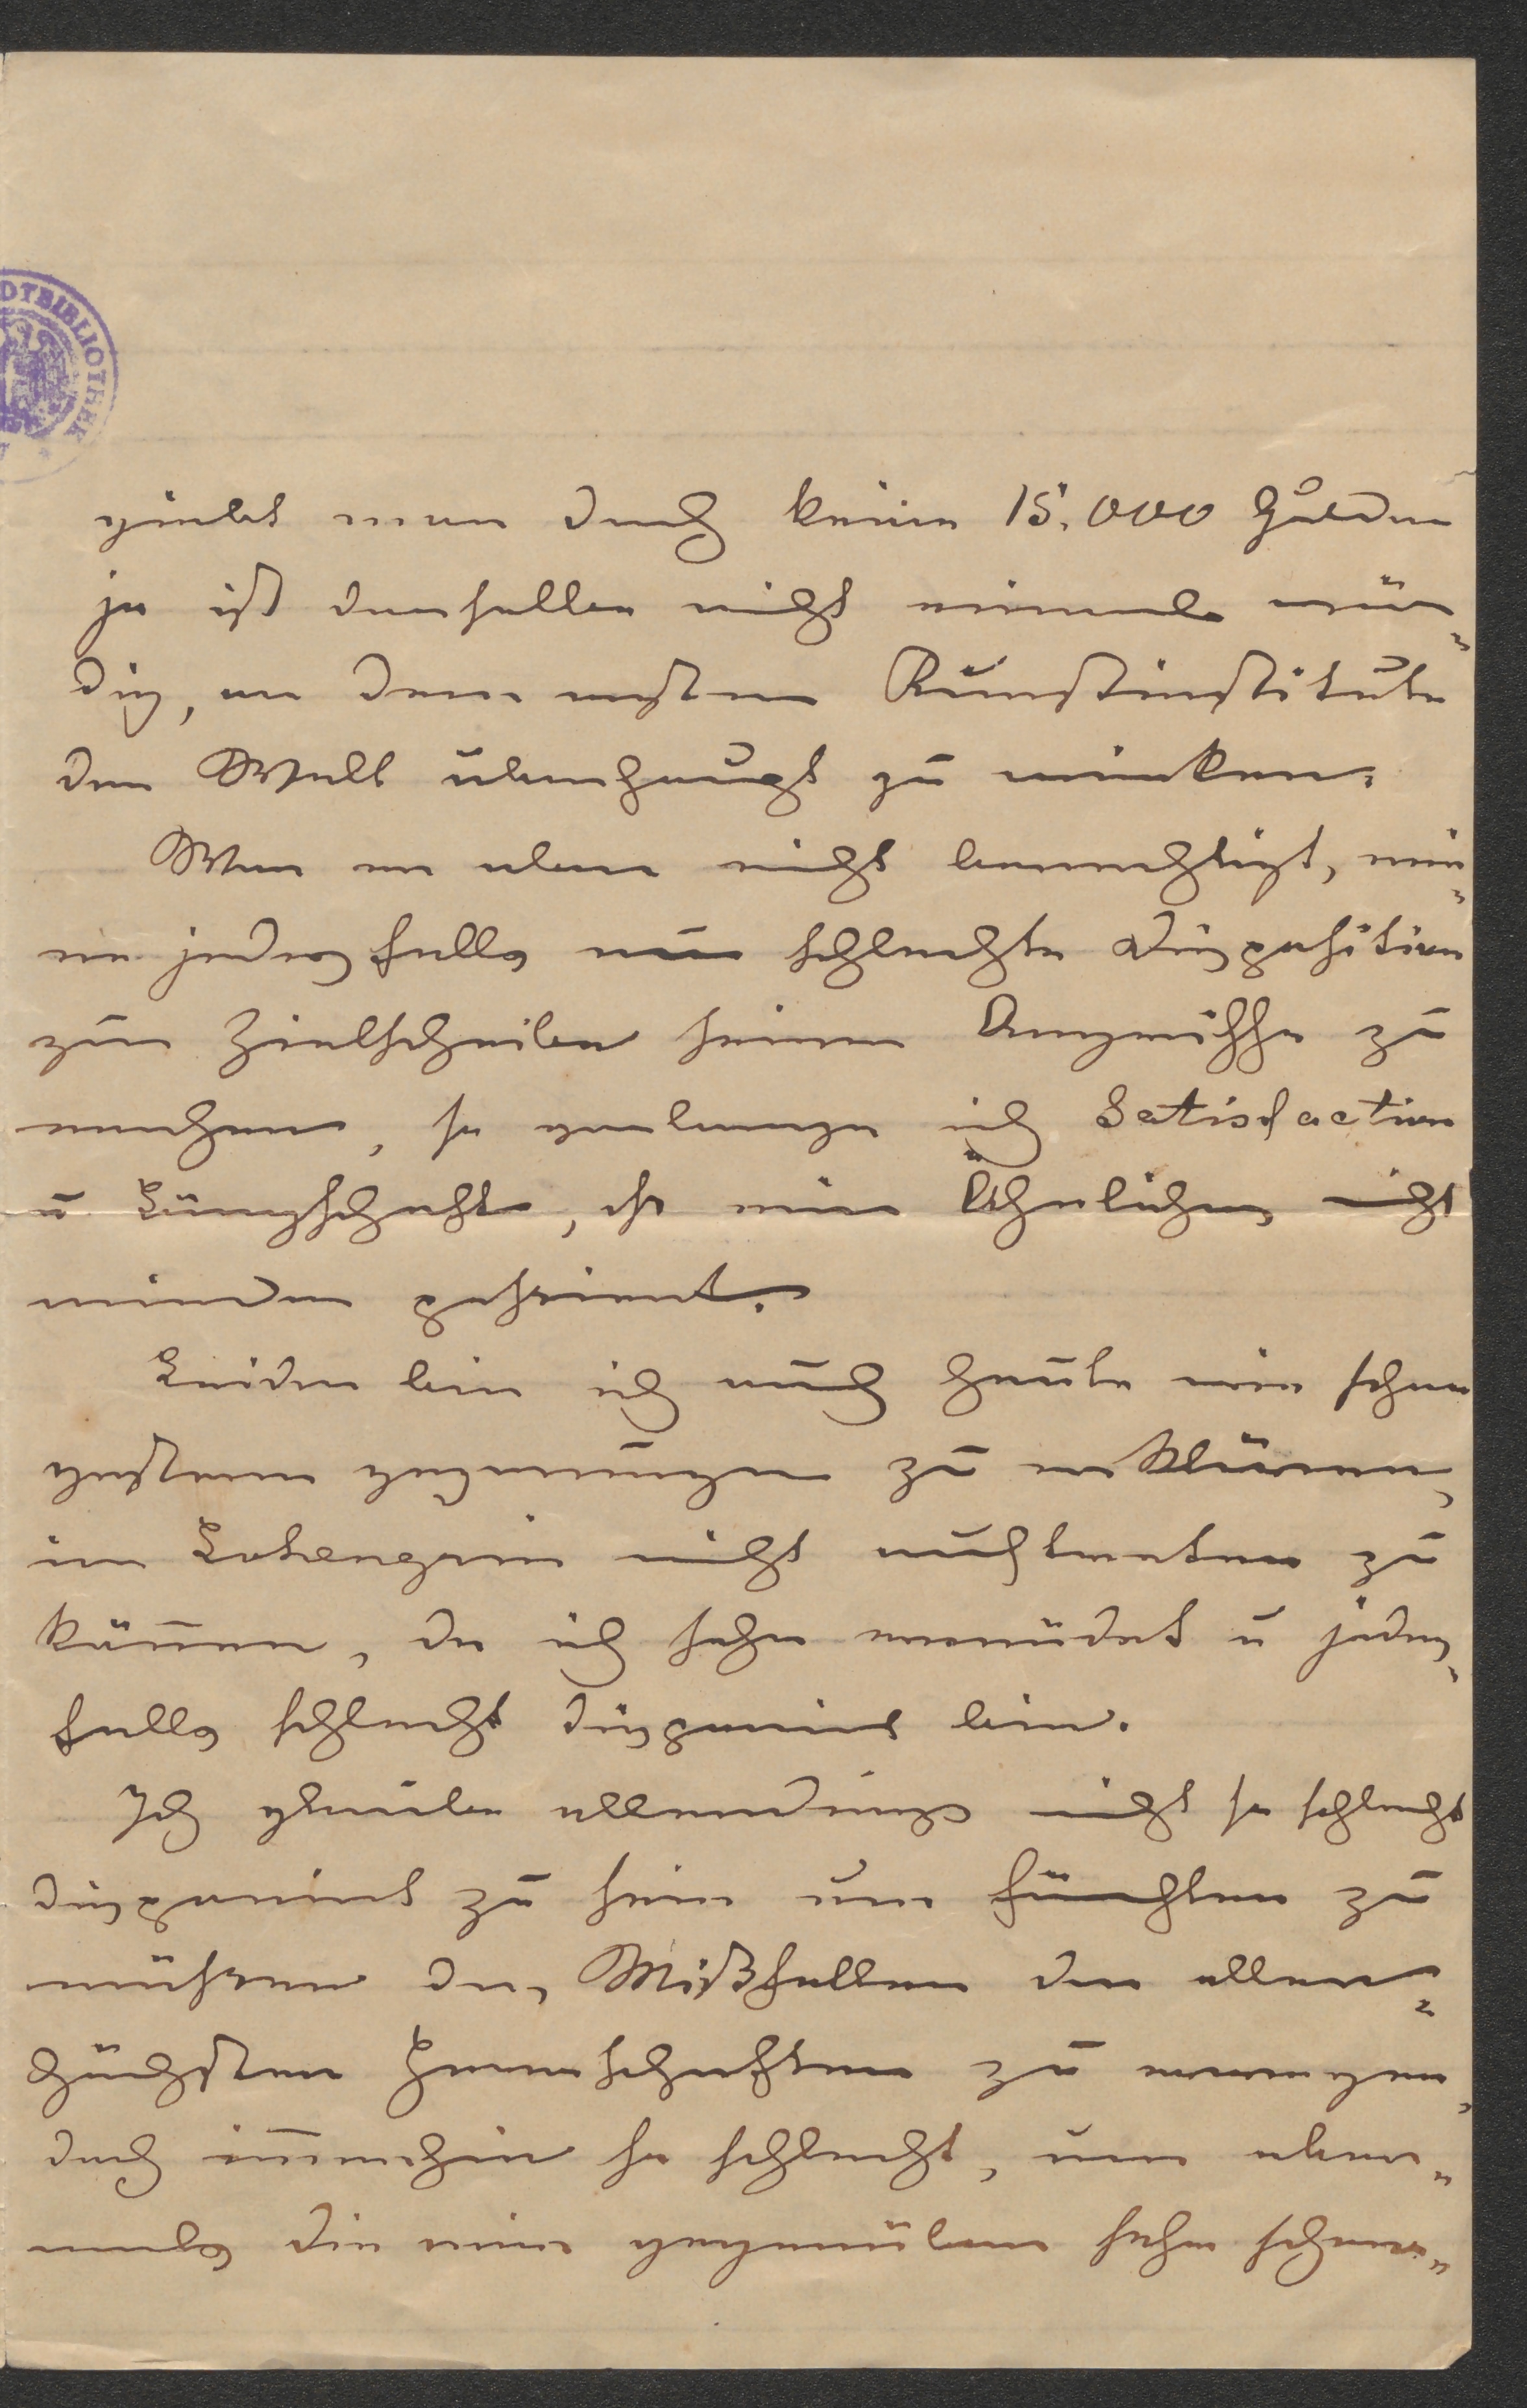 DTBIBLIOTHEK *
giebt man doch keine 15.000 Gulden
ja ist derselbe nicht einmal wür„
dig, an dem ersten Kunstinstitute
der Welt überhaupt zu wirken.
War er aber nicht berechtigt, mei„
ne jedesfalls nur schlechte Disposition
zur Zielscheibe seiner Angriffe zu
machen, so verlange ich Satisfaction
u Bürgschaft, ob mir Ähnliches nicht
wieder passiert.
Leider bin ich auch heute wie schon
gestern gezwungen zu erklären,
im Lohengrin nicht auftreten zu
können, da ich sehr ermüdet u jedes„
falls schlecht disponirt bin.
Ich glaube allerdings nicht so schlecht
disponirt zu sein um fürchten zu
müssen das Mißfallen der aller„
höchsten Herrschaften zu erregen,
doch immerhin so schlecht, um aber„
mals die mir gegenüber sehr schar„